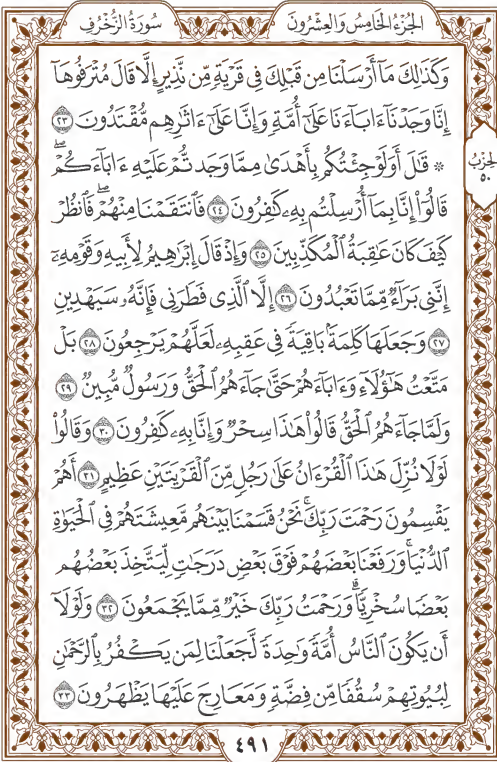 سُورَةُ الزُّخْرُفِ
الجُزْءُ الخَامِسُ وَالعِشْرُونَ
وَكَذَٰلِكَ مَآ أَرْسَلْنَا مِن قَبْلِكَ فِي قَرْيَةٍ مِّن نَّذِيرٍ إِلَّا قَالَ مُتْرَفُوهَآ
إِنَّا وَجَدْنَآ ءَابَآءَنَا عَلَىٰٓ أُمَّةٍ وَإِنَّا عَلَىٰٓ ءَاثَٰرِهِم مُّقْتَدُونَ ٢٣
۞ قَٰلَ أَوَلَوْ جِئْتُكُم بِأَهْدَىٰ مِمَّا وَجَدتُّمْ عَلَيْهِ ءَابَآءَكُمْۖ
قَالُوٓا۟ إِنَّا بِمَآ أُرْسِلْتُم بِهِۦ كَٰفِرُونَ ٢٤ فَٱنتَقَمْنَا مِنْهُمْۖ فَٱنظُرْ
كَيْفَ كَانَ عَٰقِبَةُ ٱلْمُكَذِّبِينَ ٢٥ وَإِذْ قَالَ إِبْرَٰهِيمُ لِأَبِيهِ وَقَوْمِهِۦٓ
إِنَّنِي بَرَآءٌ مِّمَّا تَعْبُدُونَ ٢٦ إِلَّا ٱلَّذِي فَطَرَنِي فَإِنَّهُۥ سَيَهْدِينِ
٢٧ وَجَعَلَهَا كَلِمَةًۢ بَاقِيَةً فِي عَقِبِهِۦ لَعَلَّهُمْ يَرْجِعُونَ ٢٨ بَلْ
مَتَّعْتُ هَٰٓؤُلَآءِ وَءَابَآءَهُمْ حَتَّىٰ جَآءَهُمُ ٱلْحَقُّ وَرَسُولٌ مُّبِينٌ ٢٩
وَلَمَّا جَآءَهُمُ ٱلْحَقُّ قَالُوا۟ هَٰذَا سِحْرٌ وَإِنَّا بِهِۦ كَٰفِرُونَ ٣٠ وَقَالُوا۟
لَوْلَا نُزِّلَ هَٰذَا ٱلْقُرْءَانُ عَلَىٰ رَجُلٍ مِّنَ ٱلْقَرْيَتَيْنِ عَظِيمٍ ٣١ أَهُمْ
يَقْسِمُونَ رَحْمَتَ رَبِّكَۚ نَحْنُ قَسَمْنَا بَيْنَهُم مَّعِيشَتَهُمْ فِي ٱلْحَيَوٰةِ
ٱلدُّنْيَاۚ وَرَفَعْنَا بَعْضَهُمْ فَوْقَ بَعْضٍ دَرَجَٰتٍ لِّيَتَّخِذَ بَعْضُهُم
بَعْضًا سُخْرِيًّاۗ وَرَحْمَتُ رَبِّكَ خَيْرٌ مِّمَّا يَجْمَعُونَ ٣٢ وَلَوْلَآ
أَن يَكُونَ ٱلنَّاسُ أُمَّةً وَٰحِدَةً لَّجَعَلْنَا لِمَن يَكْفُرُ بِٱلرَّحْمَٰنِ
لِبُيُوتِهِمْ سُقُفًا مِّن فِضَّةٍ وَمَعَارِجَ عَلَيْهَا يَظْهَرُونَ ٣٣
الحِزْب
٥٠
٤٩١